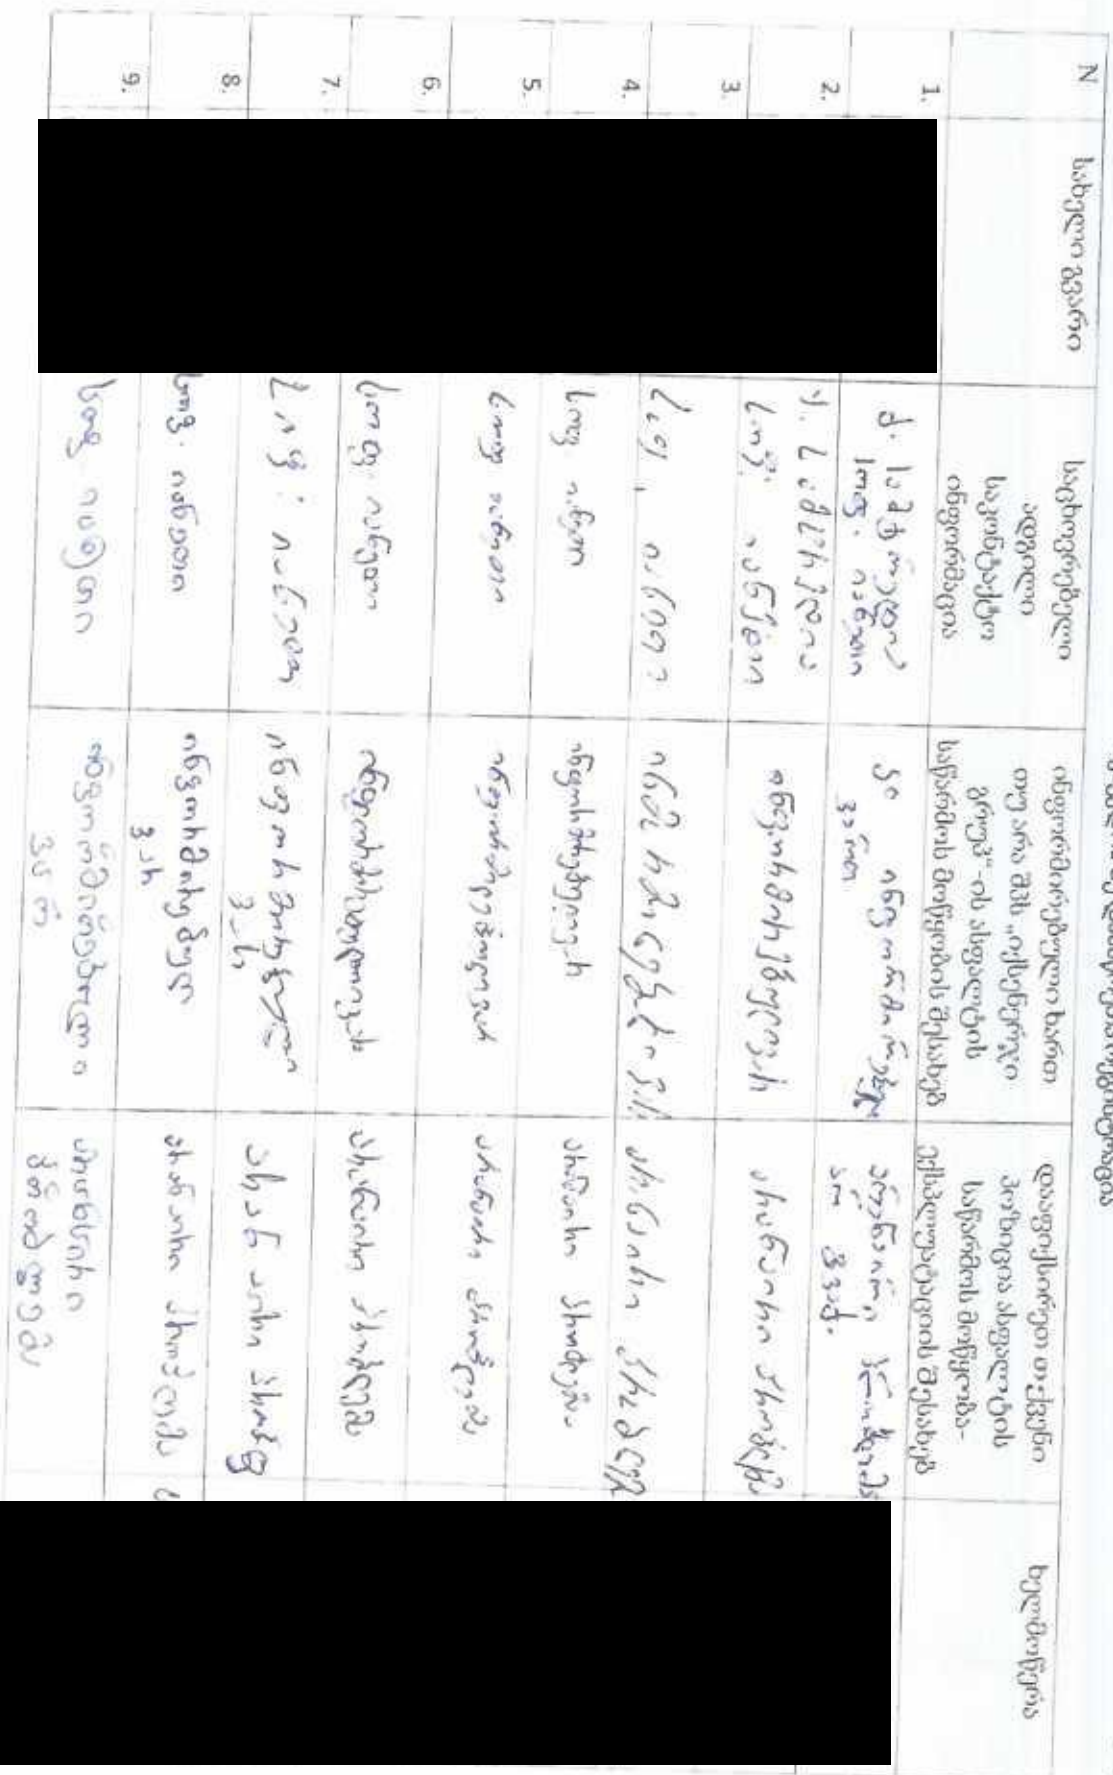 N
სახელი გვარი
საცხოვრებელი
ადგილი
საკონტაქტო
ინფორმაცია
ინფორმირებული ხართ
თუ არა შპს „იქსენერჯი
გრუპ“-ის ასფალტის
საწარმოს მოწყობის შესახებ
დააფიქსირეთ თქვენი
პოზიცია ასფალტის
საწარმოს მოწყობა-
ექსპლუატაციის შესახებ
ხელმოწერა
1.
ქ. სამტრედია
სოფ. იანეთი
კი ინფორმირებულ
ვართ
არანაირი პრობლემა
არ გვაქ.
2.
ქ. სამტრედია
სოფ. იანეთი
ინფორმირებულივარ
არანაირი პრობლემა
3.
სოფ. იანეთი
4.
სოფ. იანეთი
ინფორმირებულივარ
არანაირი პრობლემა
5.
სოფ იანეთი
ინფორმირებულივარ
არანაირი პრობლემა
6.
სოფ. იანეთი
ინფორმირებულივარ
არანაირი პრობლემა
7.
სოფ. იანეთი
ინფორმირებული
ვარ
არანაირი პრობლ
8.
სოფ. იანეთი
ინფორმირებულ
ვარ
არანაირი პრობლემა
9.
სოფ იანეთი
ინფორმირებული
ვარ
არანაირი
პრობლემა